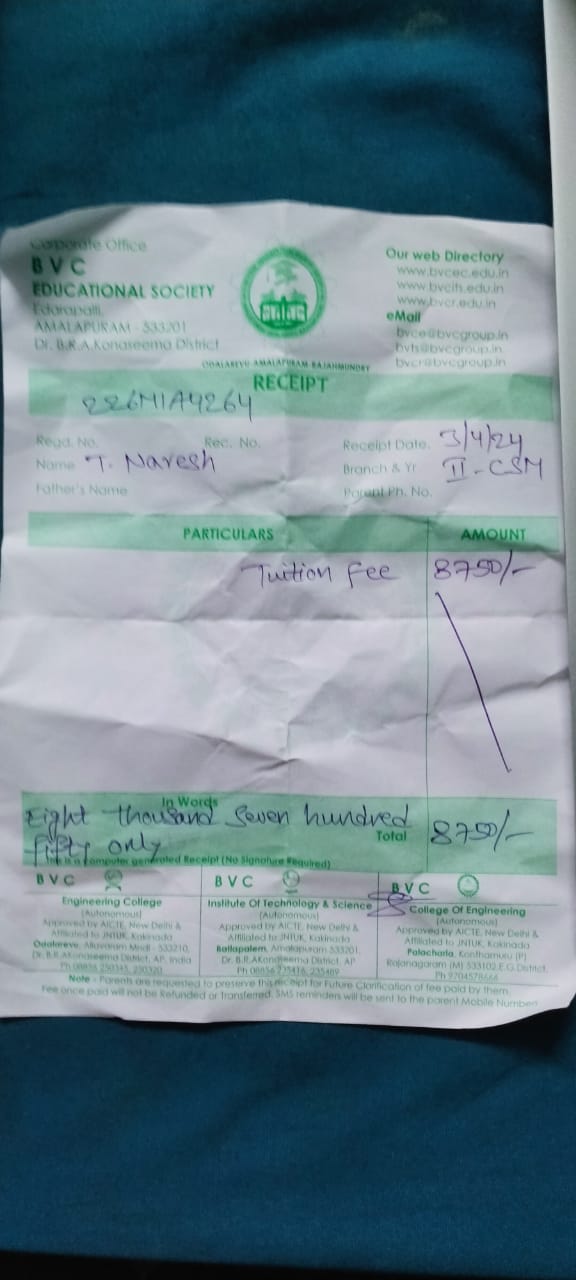 Corporate Office
BVC
EDUCATIONAL SOCIETY
Edarapalli,
AMALAPURAM - 533201
Dr. B.R.A.Konaseema District
Our web Directory
www.bvcec.edu.in
www.bvcits.edu.in
www.bvcr.edu.in
eMail
bvce@bvcgroup.in
bvts@bvcgroup.in
bvcr@bvcgroup.in
ODALAREVU AMALAPURAM RAJAHMUNDRY
RECEIPT
226M1A4264
Regd. No. Rec. No. Receipt Date. 3/4/24
Name T. Naresh Branch & Yr II - CSM
Father's Name Parent Ph. No.
PARTICULARS AMOUNT
Tuition Fee 8750/-
In Words
Eight thousand Seven hundred
Total 8750/-
fifty only
This is a computer generated Receipt (No Signature Required)
BVC
Engineering College
(Autonomous)
Approved by AICTE, New Delhi &
Affiliated to JNTUK, Kakinada
Odalarevu, Allavaram Mndl - 533210,
Dr. B.R.AKonaseema District, AP, India
BVC
Institute Of Technology & Science
(Autonomous)
Approved by AICTE, New Delhi &
Affiliated to JNTUK, Kakinada
Batlapalem, Amalapuram 533201,
Dr. B.R.AKonaseema District, AP
BVC
College Of Engineering
(Autonomous)
Approved by AICTE, New Delhi &
Affiliated to JNTUK, Kakinada
Palacharla, Konthamuru (P)
Rajanagaram (M) 533102.E.G.District,
Ph 9704578666
Note - Parents are requested to preserve this receipt for Future Clarification of fee paid by them.
Fee once paid will not be Refunded or Transferred. SMS reminders will be sent to the parent Mobile Number.